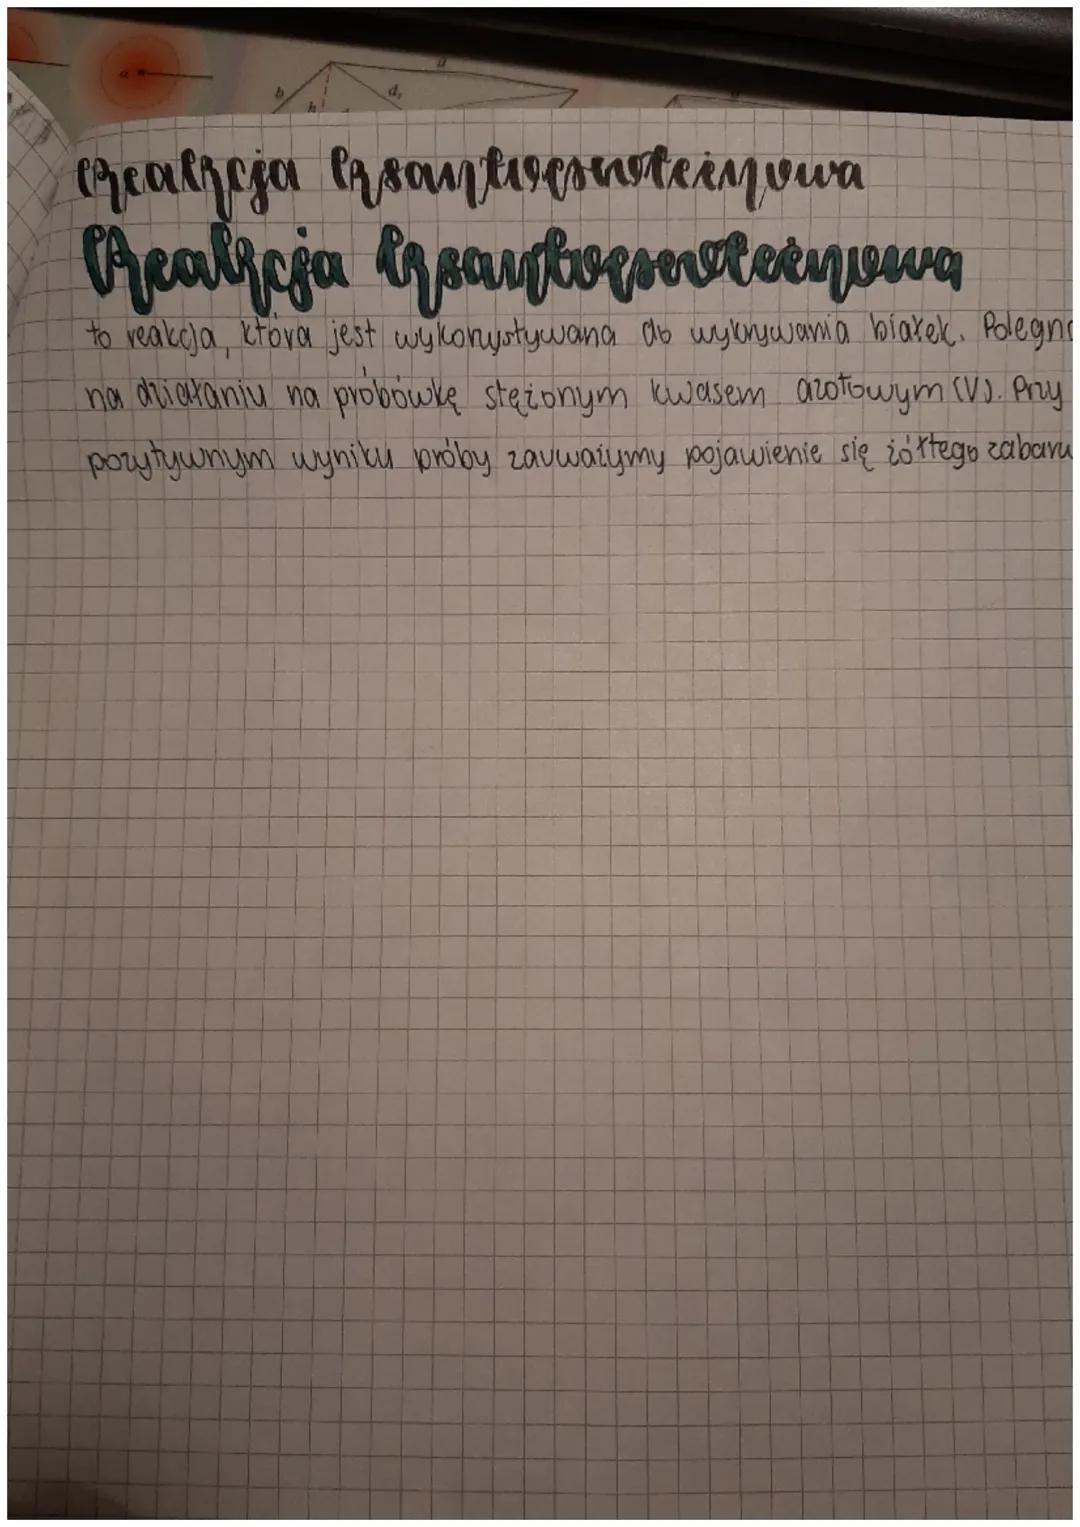 a
b
h
d,
a
Reakcja ksantoproteinowa
Reakcja ksantoproteinowa
to reakcja, która jest wykorzystywana do wykrywania białek. Polega
na działaniu na próbówkę stężonym kwasem azotowym (V). Przy
pozytywnym wyniku próby zauważymy pojawienie się żółtego zabarw